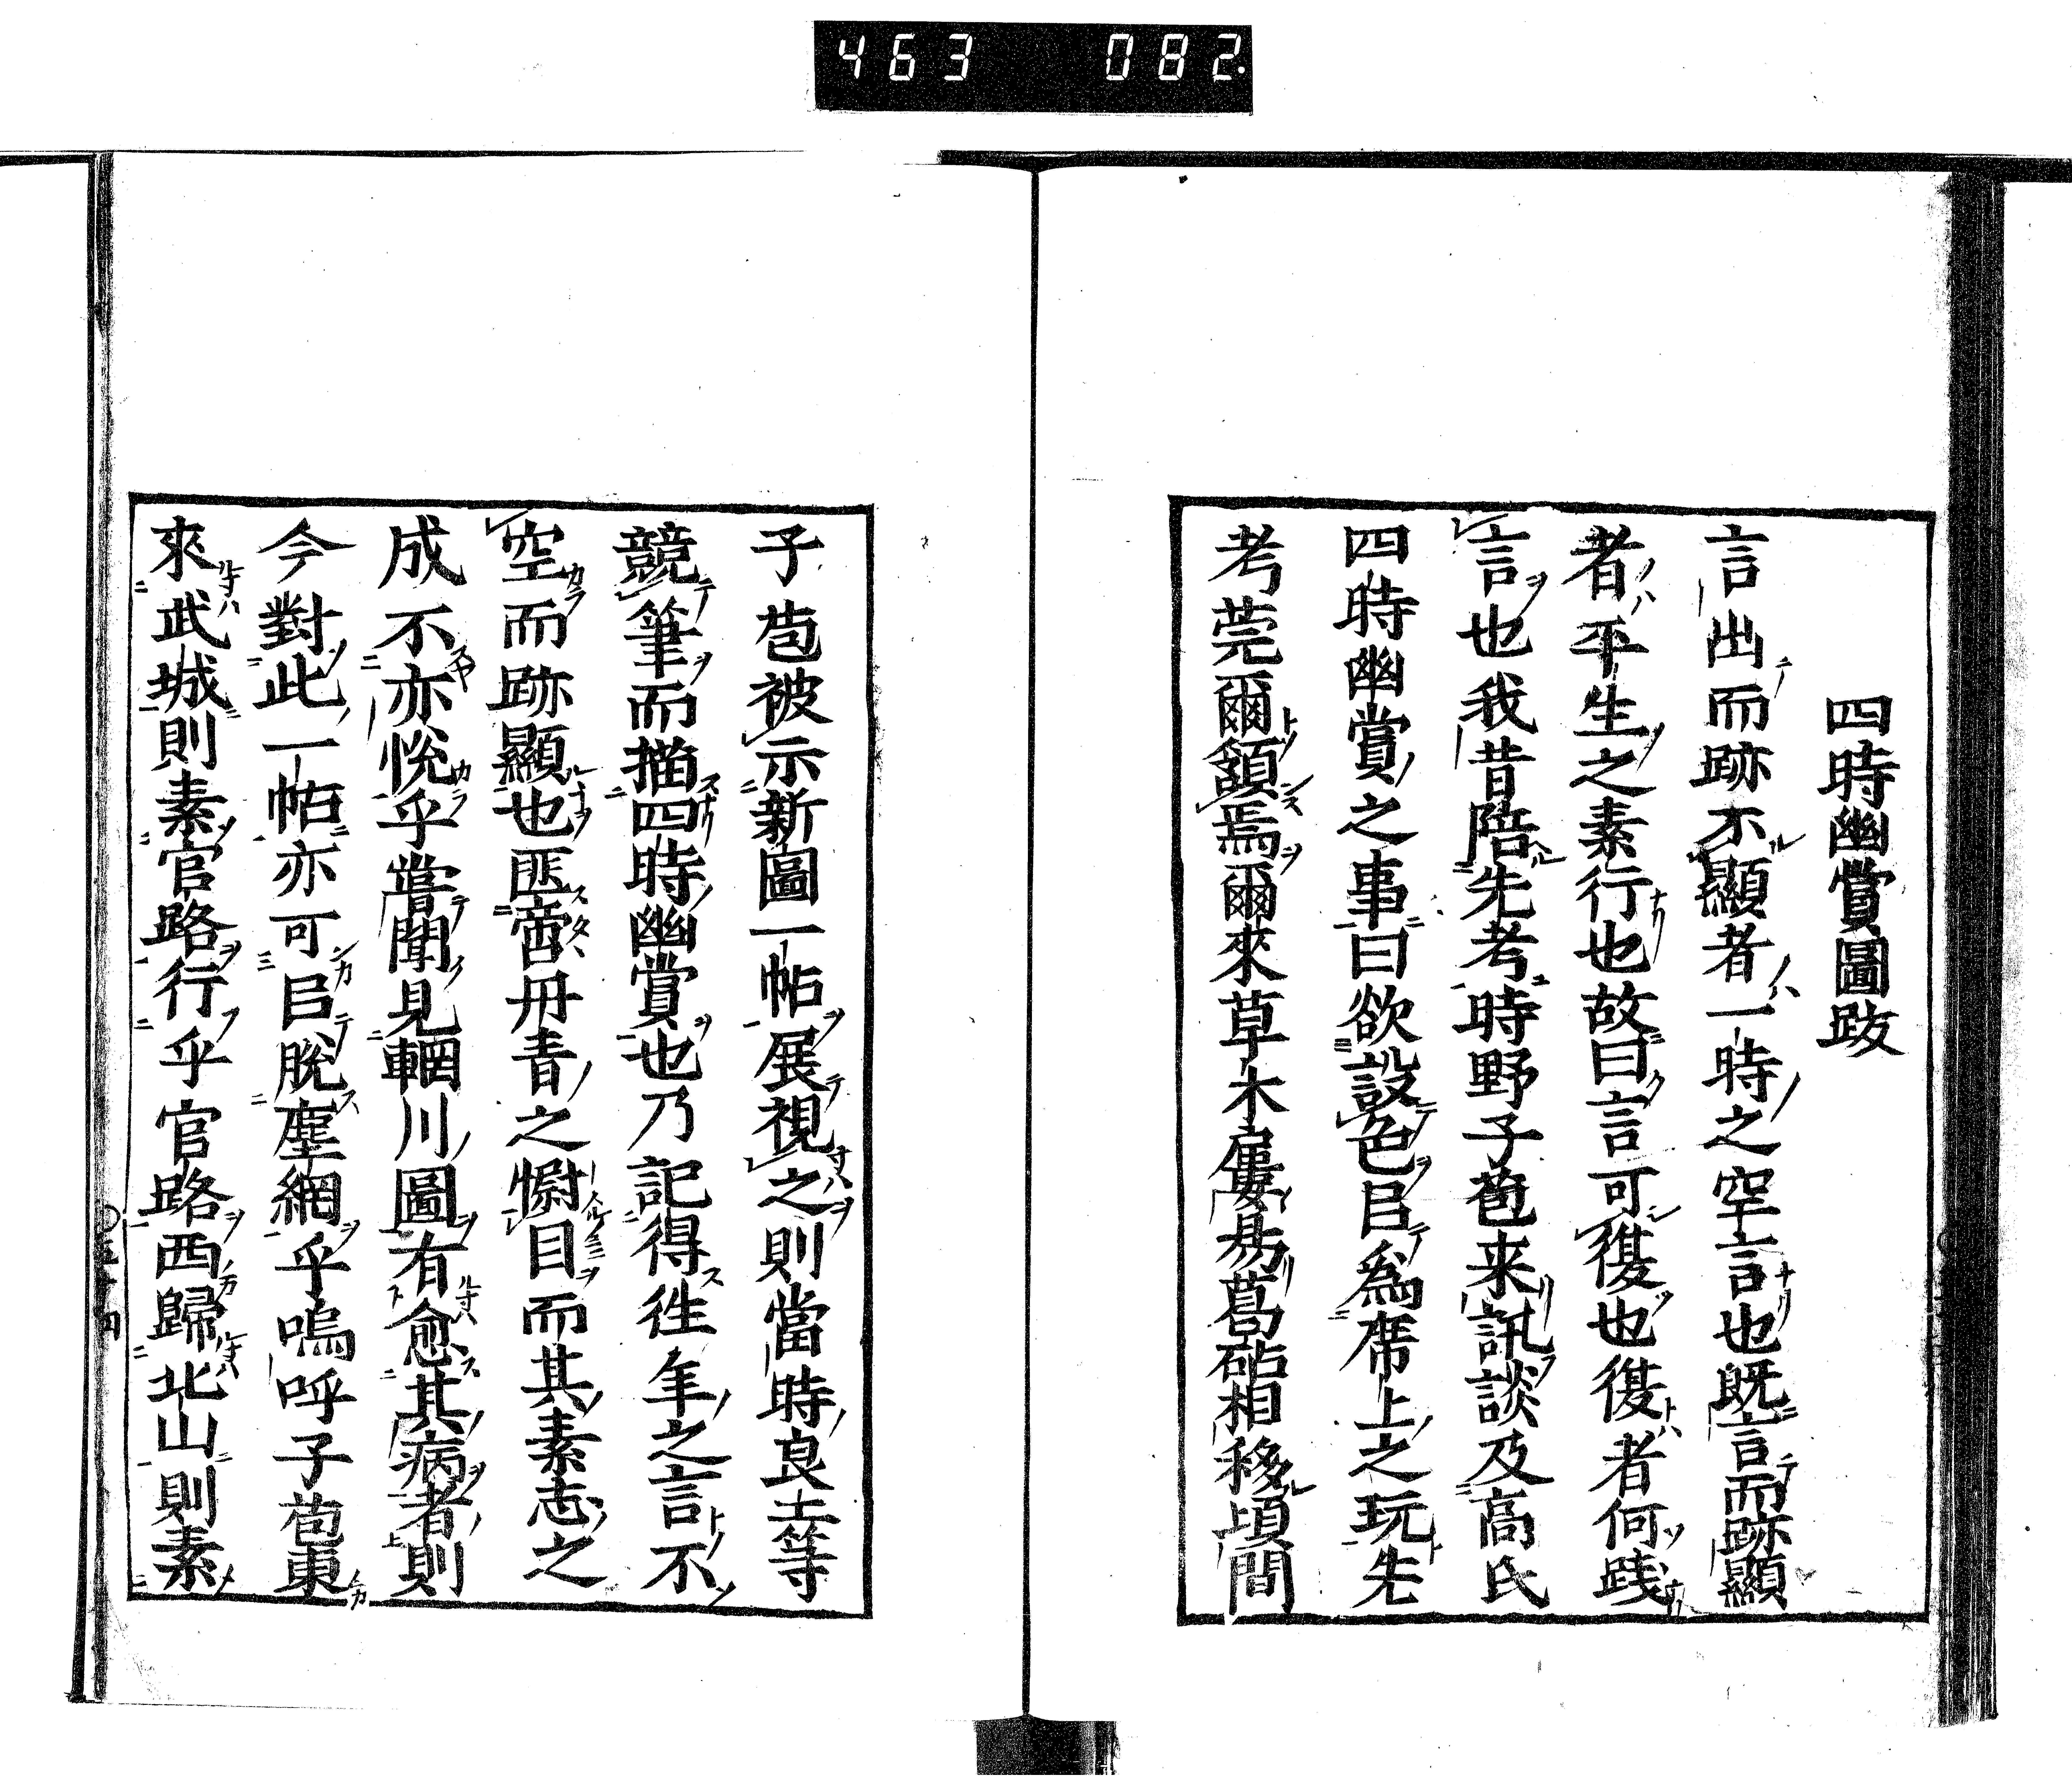 463 082
四時幽賞圖跋
言出而跡不顯者一時之空言也既言而跡顯
者平生之素行也故曰言可復也復者何踐
言也我昔陪先考時野子苞来訊談及高氏
四時幽賞之事曰欲設色㠯爲席上之玩先
考莞爾頷焉爾來草木屢易葛砧相移頃間
子苞被示新圖一帖展視之則當時良士等
競筆而描四時幽賞也乃記得徃年之言不
空而跡顯也匪啻丹青之慰目而其素志之
成不亦悅乎嘗聞見輞川圖有愈其病者則
今對此一帖亦可㠯脫塵網乎嗚呼子苞東
來武城則素官路行乎官路西歸北山則素